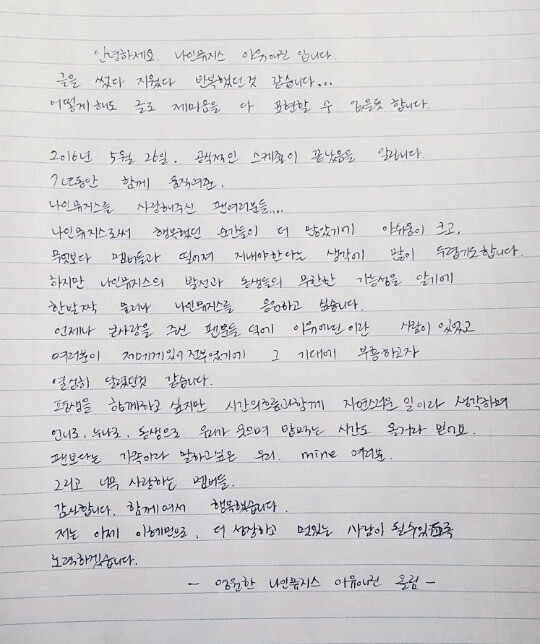 안녕하세요. 나인뮤지스 이유애린 입니다.
글을 썼다 지웠다 반복했던것 같습니다...
어떻게 해도 글로 제마음을 다 표현할 수 없을듯 합니다.
2016년 5월 26일. 공식적인 스케쥴이 끝났음을 알립니다.
7년동안 함께 움직여준,
나인뮤지스를 사랑해주신 팬여러분들....
나인뮤지스로써 행복했던 순간들이 더 많았기에 아쉬움이 크고,
무엇보다 멤버들과 떨어져 지내야한다는 생각에 많이 두렵기도합니다.
하지만 나인뮤지스의 발전과 동생들의 무한한 가능성을 알기에
한발짝 물러나 나인뮤지스를 응원하고 싶습니다.
언제나 큰사랑을 주신 팬분들 덕에 이유애린이란 사람이 있었고
여러분이 저에게있어 전부였기에 그 기대에 부흥하고자
열심히 달렸던것 같습니다.
평생을 함께하고 싶지만 시간의흐름과함께 자연스러운 일이라 생각하며
언니로, 누나로, 동생으로 우리가 웃으며 맞이하는 시간도 올거라 믿어요.
팬보다는 가족이라 말하고싶은 우리. mine 여러분.
그리고 너무 사랑하는 멤버들.
감사합니다. 함께여서 행복했습니다.
저는 이제 이혜민으로, 더 성장하고 멋있는 사람이 될수있도록
노력하겠습니다.
- 영원한 나인뮤지스 이유애린 올림 -